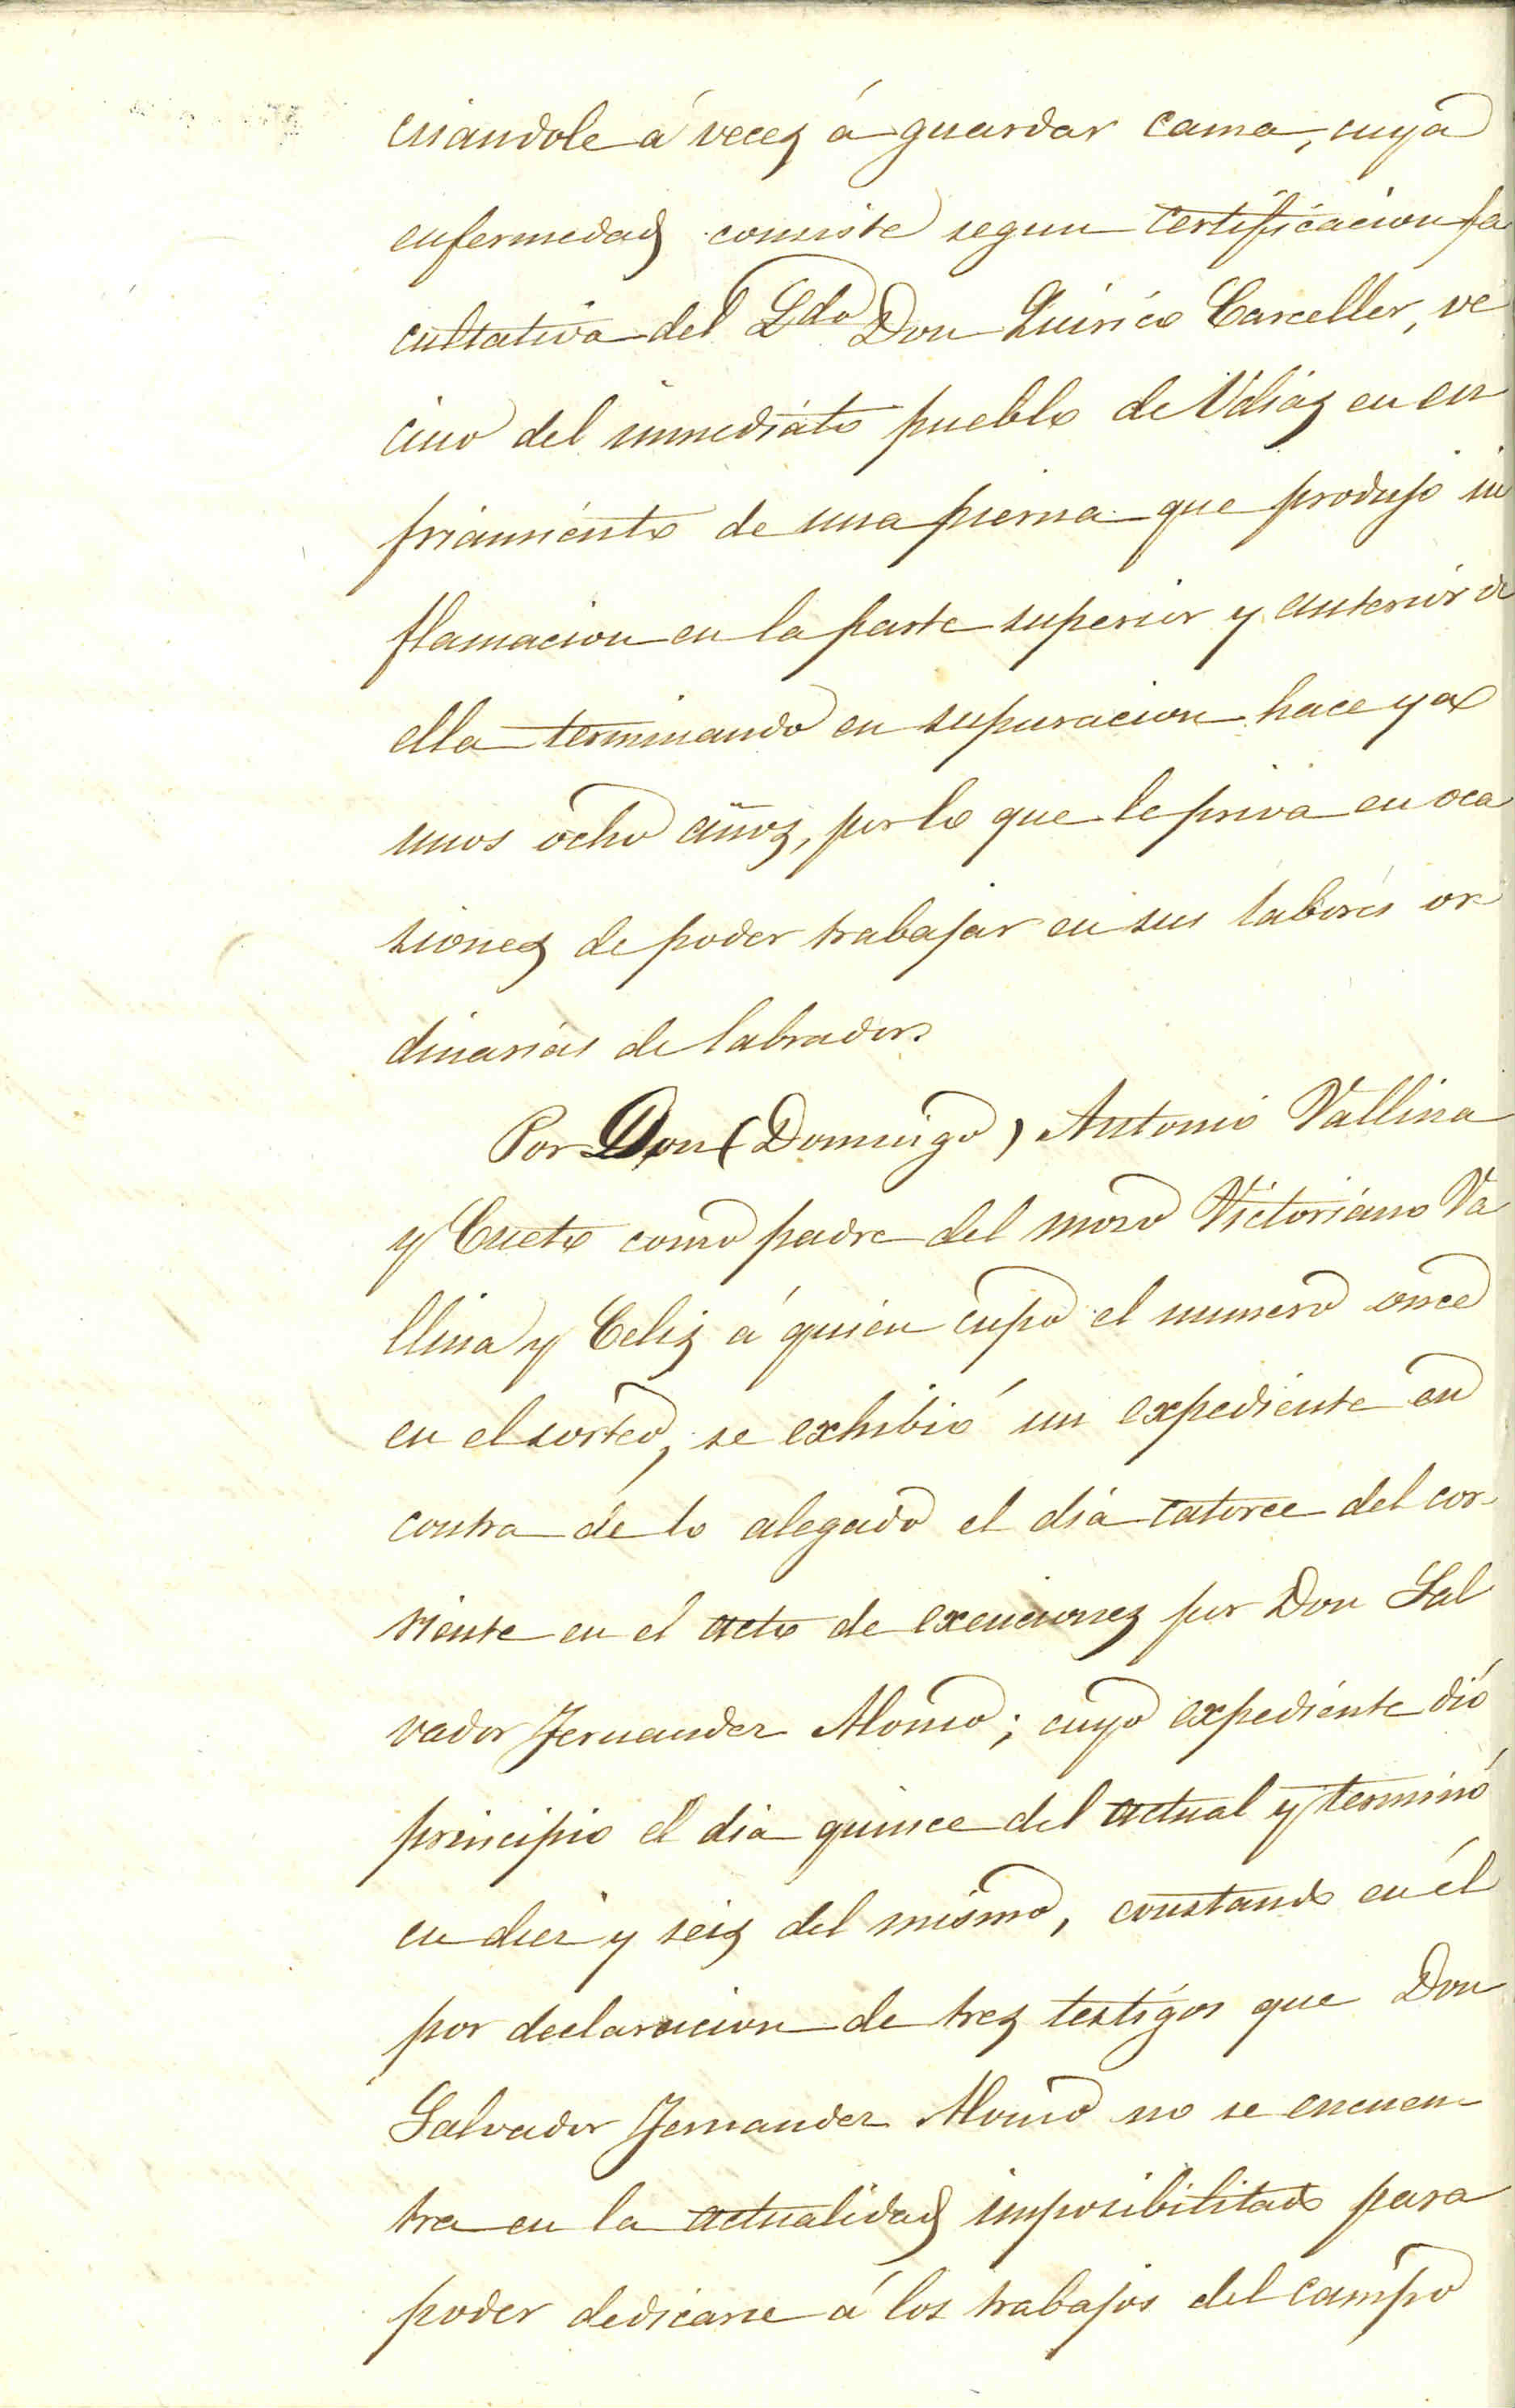 ciandole á veces á guardar cama, cuya
enfermedad consiste segun certificacion fa
cultativa del Ldo Don Quirico Carceller, ve
cino del inmediato pueblo de Udias en en
friamiento de una pierna que produjo in
flamacion en la parte superior y anterior de
ella terminando en supuracion hace ya
unos ocho años, por lo que le priva en oca
siones de poder trabajar en sus labores or
dinarias de labrador.
Por Don (Domingo) Antonio Vallina
y Cueto como padre del mozo Victoriano Va
llina y Celis á quien cupo el numero once
en el sorteo, se exhibió un expediente en
contra de lo alegado el dia catorce del cor-
riente en el acto de exenciones por Don Sal
vador Fernandez Alonso; cuyo expediente dió
principio el dia quince del actual y terminó
en diez y seis del mismo, constando en él
por declaracion de tres testigos que Don
Salvador Fernandez Alonso no se encuen-
tra en la actualidad imposibilitado para
poder dedicarse á los trabajos del campo